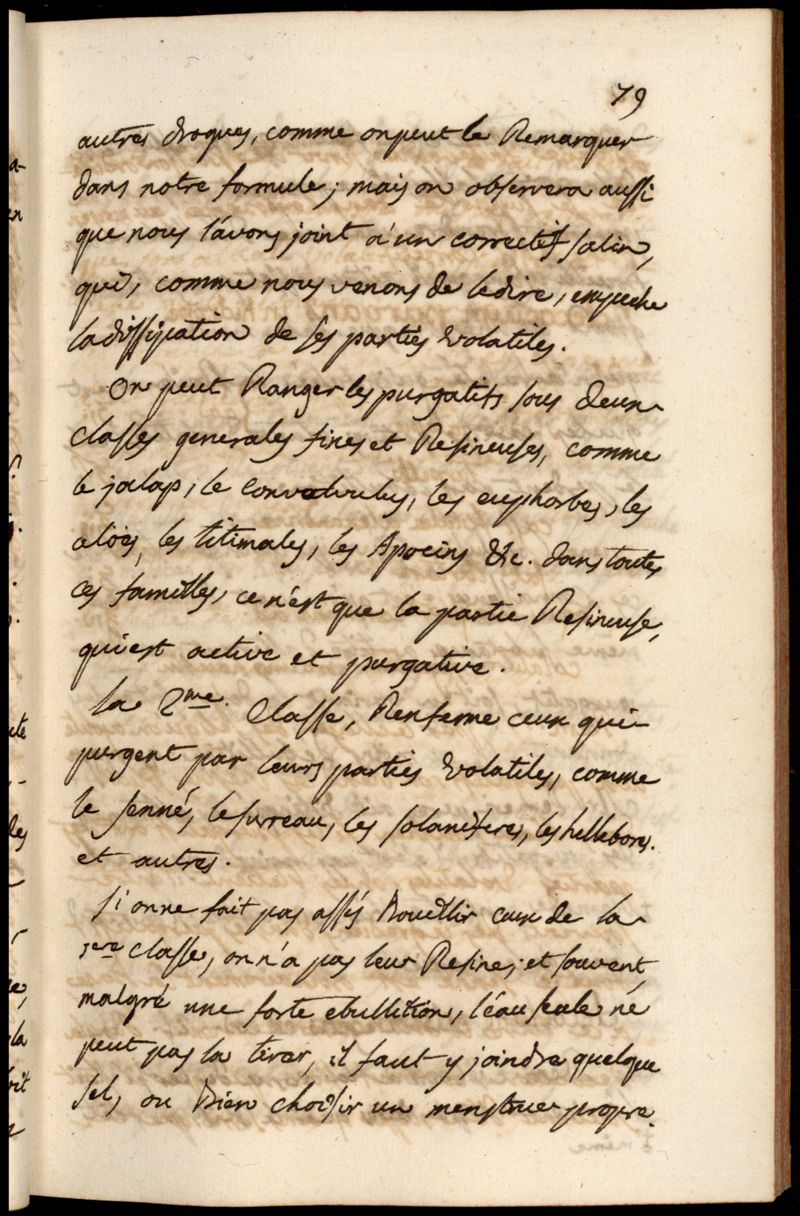 79
autres drogues, comme on peut le Remarquer
dans notre formule; mais on observera aussi
que nous l'avons joint à un correctif salin,
qui, comme nous venons de le dire, empeche
la dissipation de ses parties volatiles.
On peut Ranger les purgatifs sous deux
classes generales fines et Resineuses, comme
le jalap, le convolvulus, les euphorbes, les
aloës, les titimales, les Apocins &c. dans toutes
ces familles, ce n'est que la partie Resineuse,
qui est active et purgative.
la 2me. Classe, Renferme ceux qui
purgent par leurs parties volatiles, comme
le senné, le sureau, les solanifères, les hellebores.
et autres.
Si on ne fait pas assés Bouillir ceux de la
1ere classe, on n'a pas leur Resine; et souvent,
malgré une forte ebullition, l'éau seule ne
peut pas la tirer, il faut y joindre quelque
sel, ou Bien choisir un menstrue propre.